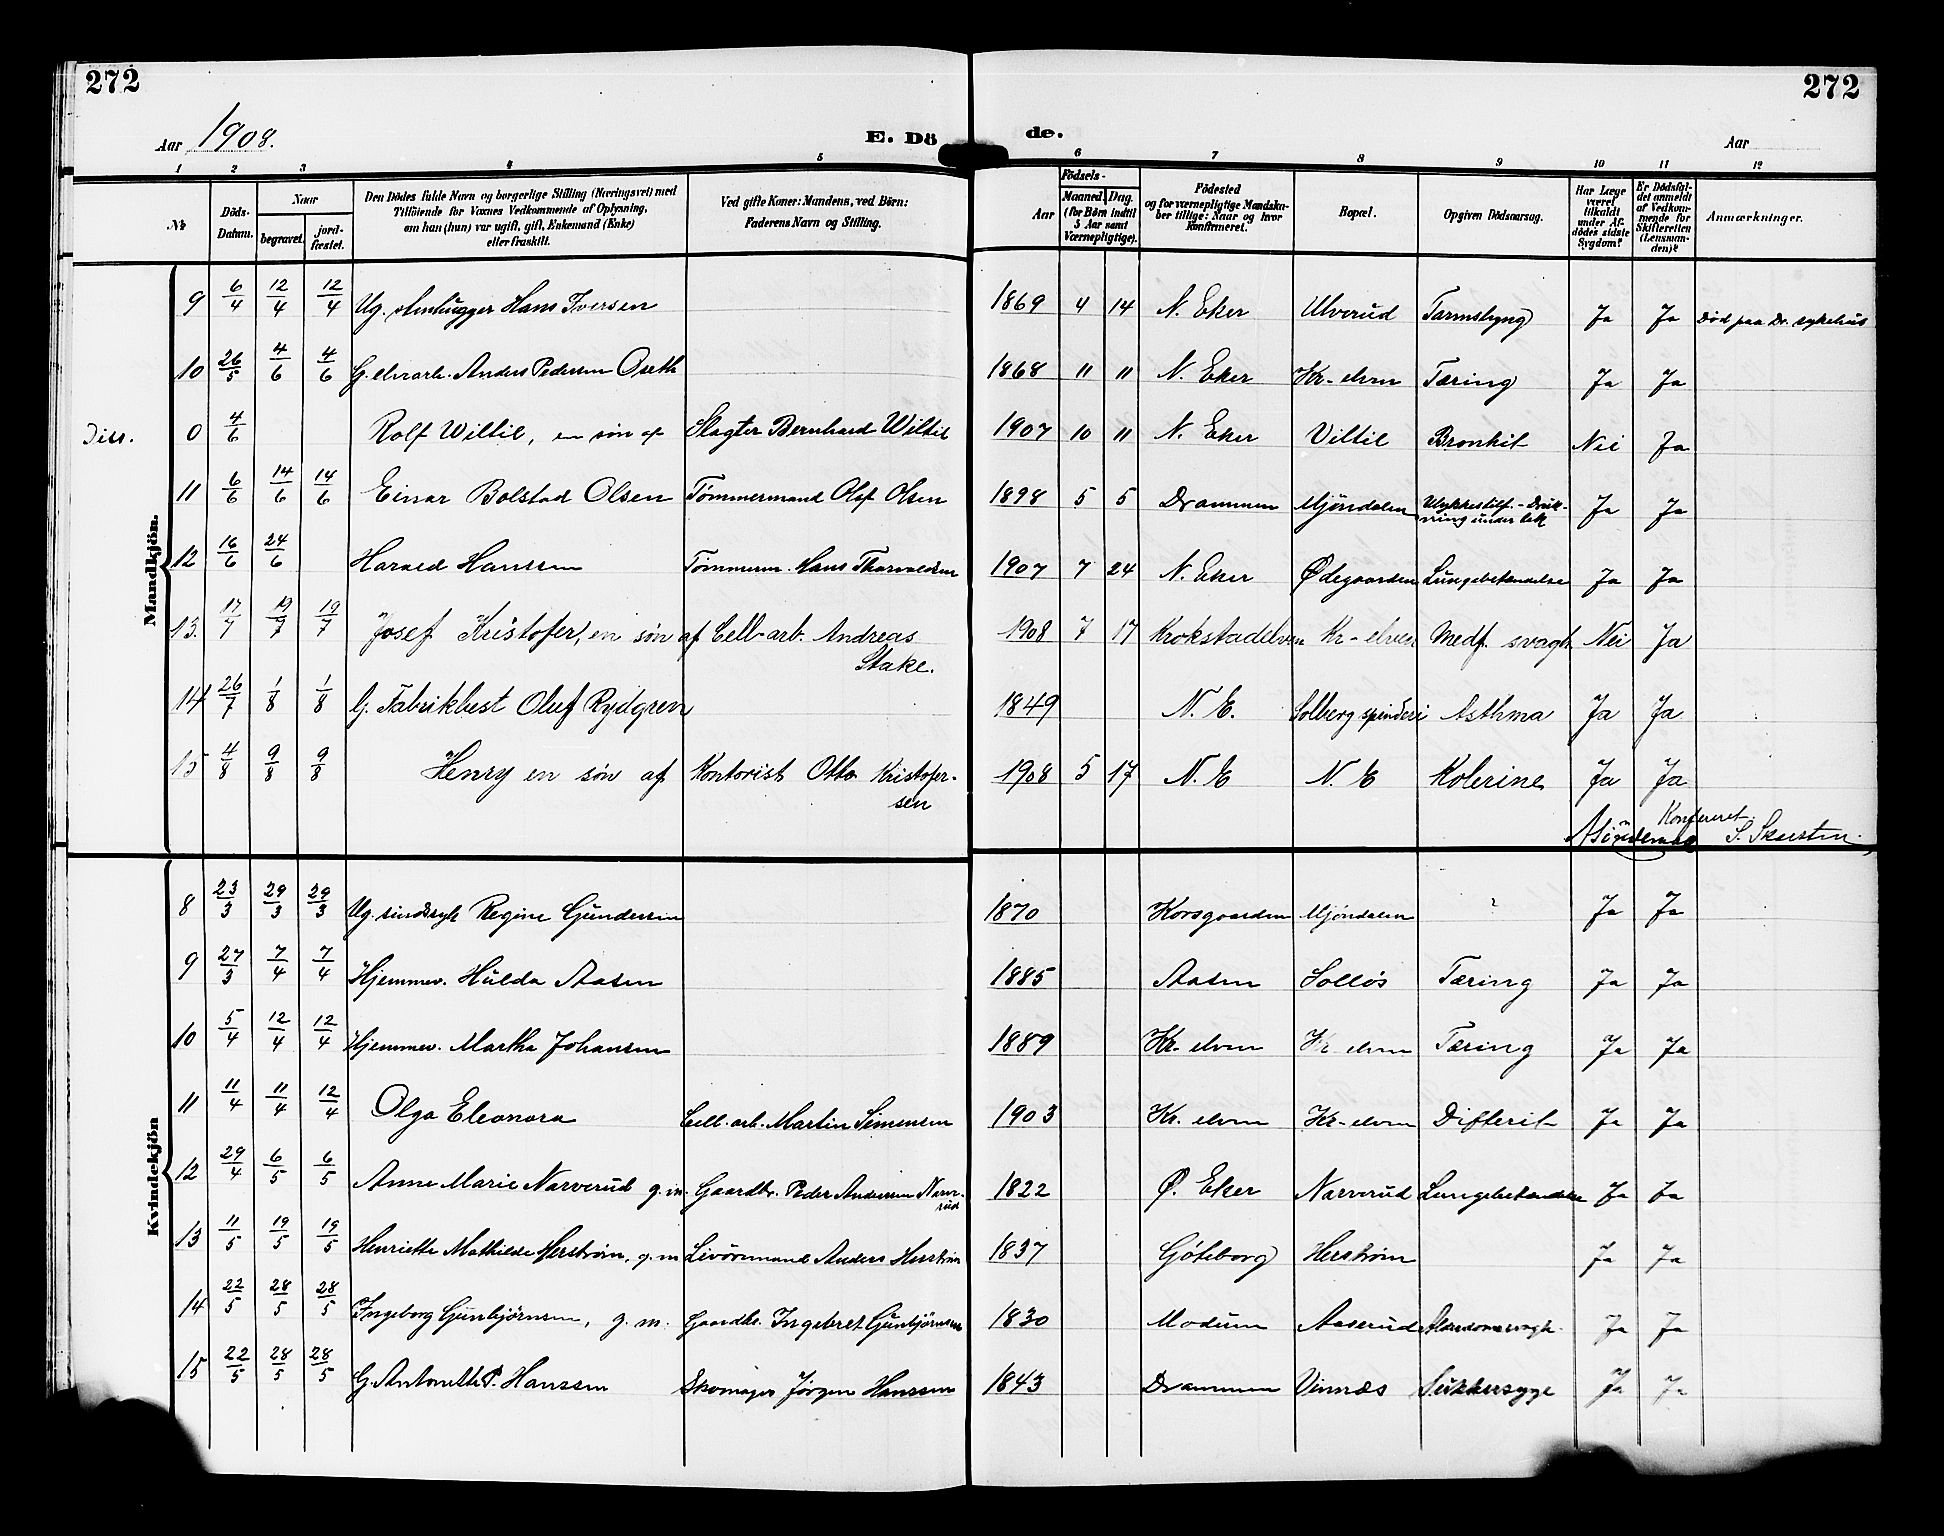 272
272
Aar 1908.
E. Dö de.
Aar
1 2 3 4 5 6 7 8 9 10 11 12
№ Döds-Datum. Naar begravet. jordfæstet. Den Dödes fulde Navn og borgerlige Stilling (Næringsvei) med Tilföiende for Voxnes Vedkommende af Oplysning, om han (hun) var ugift, gift, Enkemand (Enke) eller fraskilt. Ved gifte Koner: Mandens, ved Börn: Faderens Navn og Stilling. Födsels- Aar Maaned. Dag. (for Börn indtil 5 Aar samt Værnepligtige). Födested og for værnepligtige Mandskaber tillige: Naar og hvor konfirmeret. Bopæl. Opgiven Dödsaarsag. Har Læge været tilkaldt under Afdödes sidste Sygdom? Er Dödsfaldet anmeldt af Vedkommende for Skifteretten (Lensmanden)? Anmærkninger.
Mandkjön.
9 6/4 12/4 12/4 Ug. stenhugger Hans Iversen 1869 4 14 N. Eker Ulverud Tarmslyng Ja Ja Død paa Dr. sykehus
10 26/5 4/6 4/6 G. elvearb. Anders Pedersen Oseth 1868 11 11 N. Eker Kr-elven Tæring Ja Ja
Diss. 0 4/6 Rolf Wiltil, en søn af Slagter Bernhard Wiltil 1907 10 11 N. Eker Viltil Bronkit Nei Ja
11 6/6 14/6 14/6 Einar Bolstad Olsen Tømmermand Olaf Olsen 1898 5 5 Drammen Mjøndalen Ulykkestilf. - Drukning under lek Ja Ja
12 16/6 24/6 Harald Hanssen Tømmerm. Hans Thorvaldsen 1907 7 24 N. Eker Ødegaarden Lungebetændelse Ja Ja
13. 17/7 19/7 19/7 Josef Kristofer, en søn af Cell-arb. Andreas Stake. 1908 7 17 Krokstadelven Kr-elven Medf. svagh Nei Ja
14 26/7 1/8 1/8 G. Fabrikbest Oluf Rydgren 1849 N. E. Solberg spinderi Asthma Ja Ja
15 4/8 9/8 9/8 Henry en søn af Kontorist Otto Kristofersen 1908 5 17 N. E N. E Kolerine Ja Ja
Konfereret
S. Skarsten.
Kvindekjön
8 23/3 29/3 29/3 Ug. sindssyk Regine Gundersen 1870 Korsgaarden Mjøndalen ? Ja Ja
9 27/3 7/4 7/4 Hjemmev. Hulda Aasen 1885 Aasen Solløs Tæring Ja Ja
10 5/4 12/4 12/4 Hjemmev. Martha Johansen 1889 Kr. elven Kr elven Tæring Ja Ja
11 11/4 11/4 12/4 Olga Eleonora Cell. arb. Martin Simensen 1903 Kr. elven Kr-elven Difterit Ja Ja
12 29/4 6/5 6/5 Anne Marie Narverud g. m. Gaardbr. Peder Andersen Narverud 1822 Ø. Eker Narverud Lungebetændelse Ja Ja
13 11/5 19/5 19/5 Henriette Mathilde Herstrøm, g. m Livörsmand Anders Herstrøm 1837 Gøteborg Herstrøm Ja Ja
14 22/5 28/5 28/5 Ingeborg Gunbjørnsen, g. m. Gaardbr. Ingebret Gunbjørnsen 1830 Modum Aaserud Alderdomssvagh. Ja Ja
15 22/5 28/5 28/5 G. Antonette P. Hanssen Skomager Jørgen Hanssen 1843 Drammen Vinnæs Sukkersyge Ja Ja